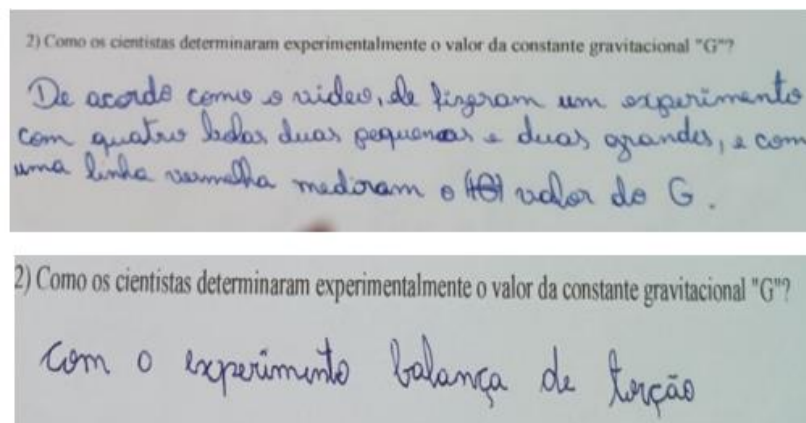 2) Como os cientistas determinaram experimentalmente o valor da constante gravitacional "G"?
De acordo como o video, de fizeram um experimento
com quatro bolas duas pequenas e duas grandes, e com
uma linha vermelha mediram o valor do G.
2) Como os cientistas determinaram experimentalmente o valor da constante gravitacional "G"?
com o experimento balança de torção